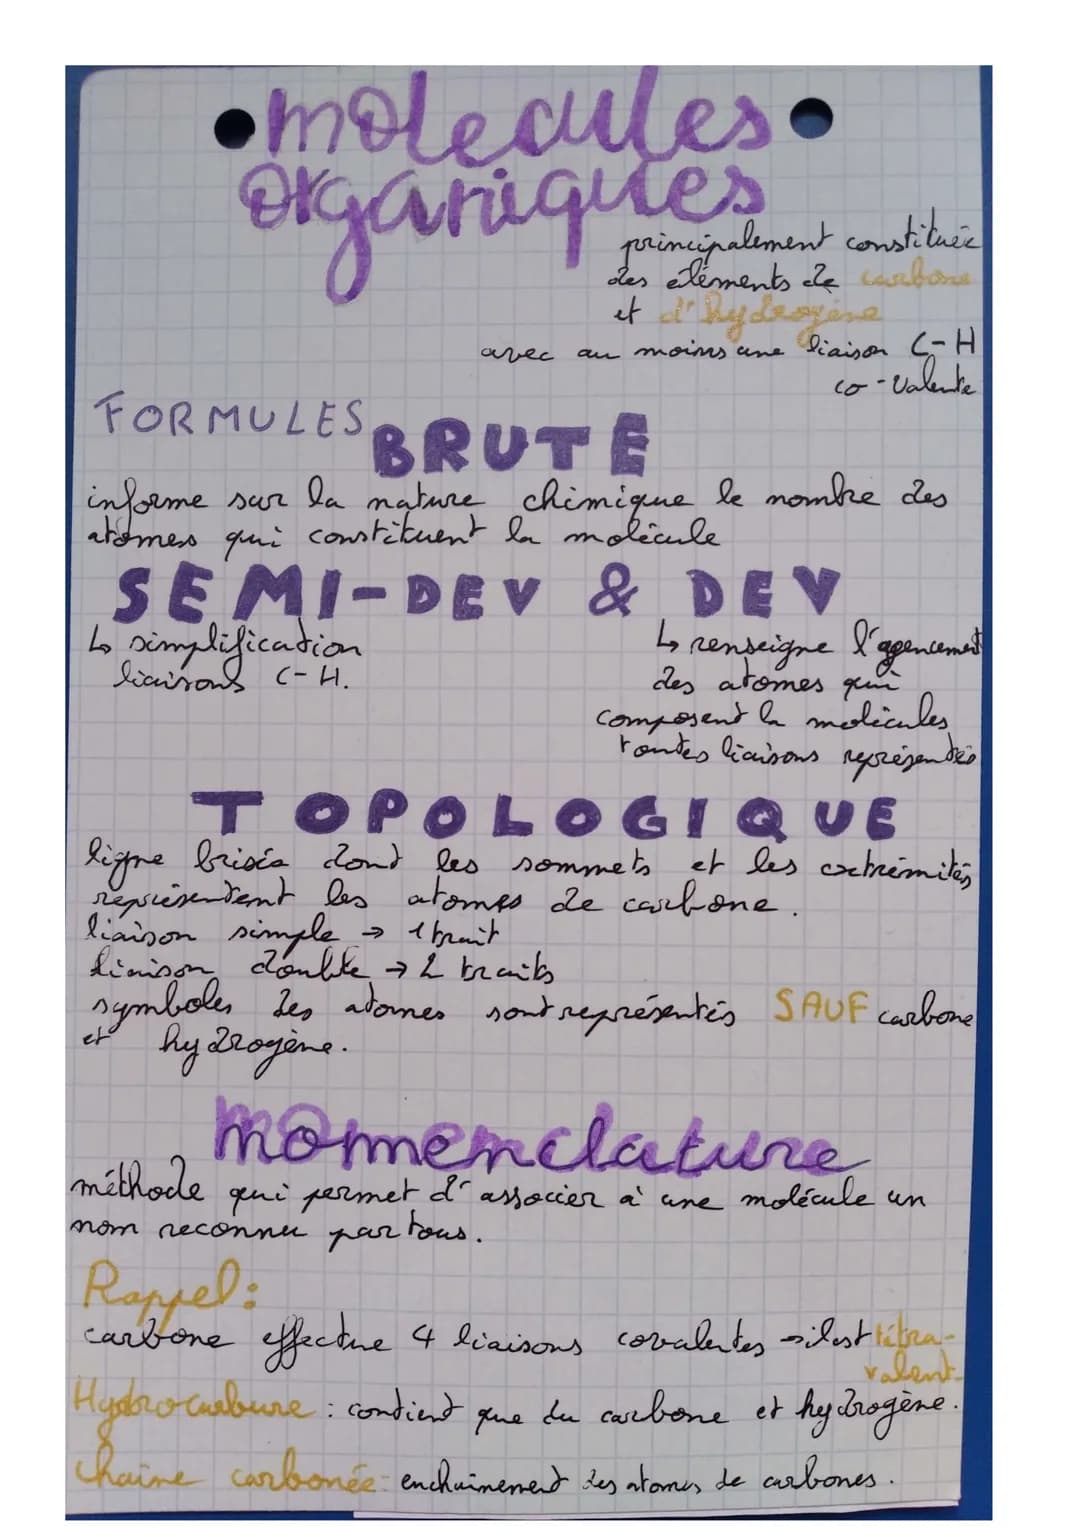 molécules
organiques
principalement constituée
des éléments de carbone
et d'hydrogène
avec au moins une liaison C-H
co-valente
FORMULES BRUTE
informe sur la nature chimique le nombre des
atomes qui constituent la molécule
SEMI-DEV & DEV
↳ simplification
liaisons C-H.
↳ renseigne l'agencement
des atomes qui
composent la molécules
toutes liaisons représentés
TOPOLOGIQUE
ligne brisée dont les sommets et les extrémités
représentent les atomes de carbone.
liaison simple → 1 trait
liaison double → 2 traits
symboles des atomes sont représentés SAUF carbone
et hydrogène.
nomenclature
méthode qui permet d'associer à une molécule un
nom reconnu par tous.
Rappel:
carbone effectue 4 liaisons covalentes → il est tétra-
valent.
Hydrocarbure : contient que du carbone et hydrogène.
chaîne carbonée: enchainement des atomes de carbones.